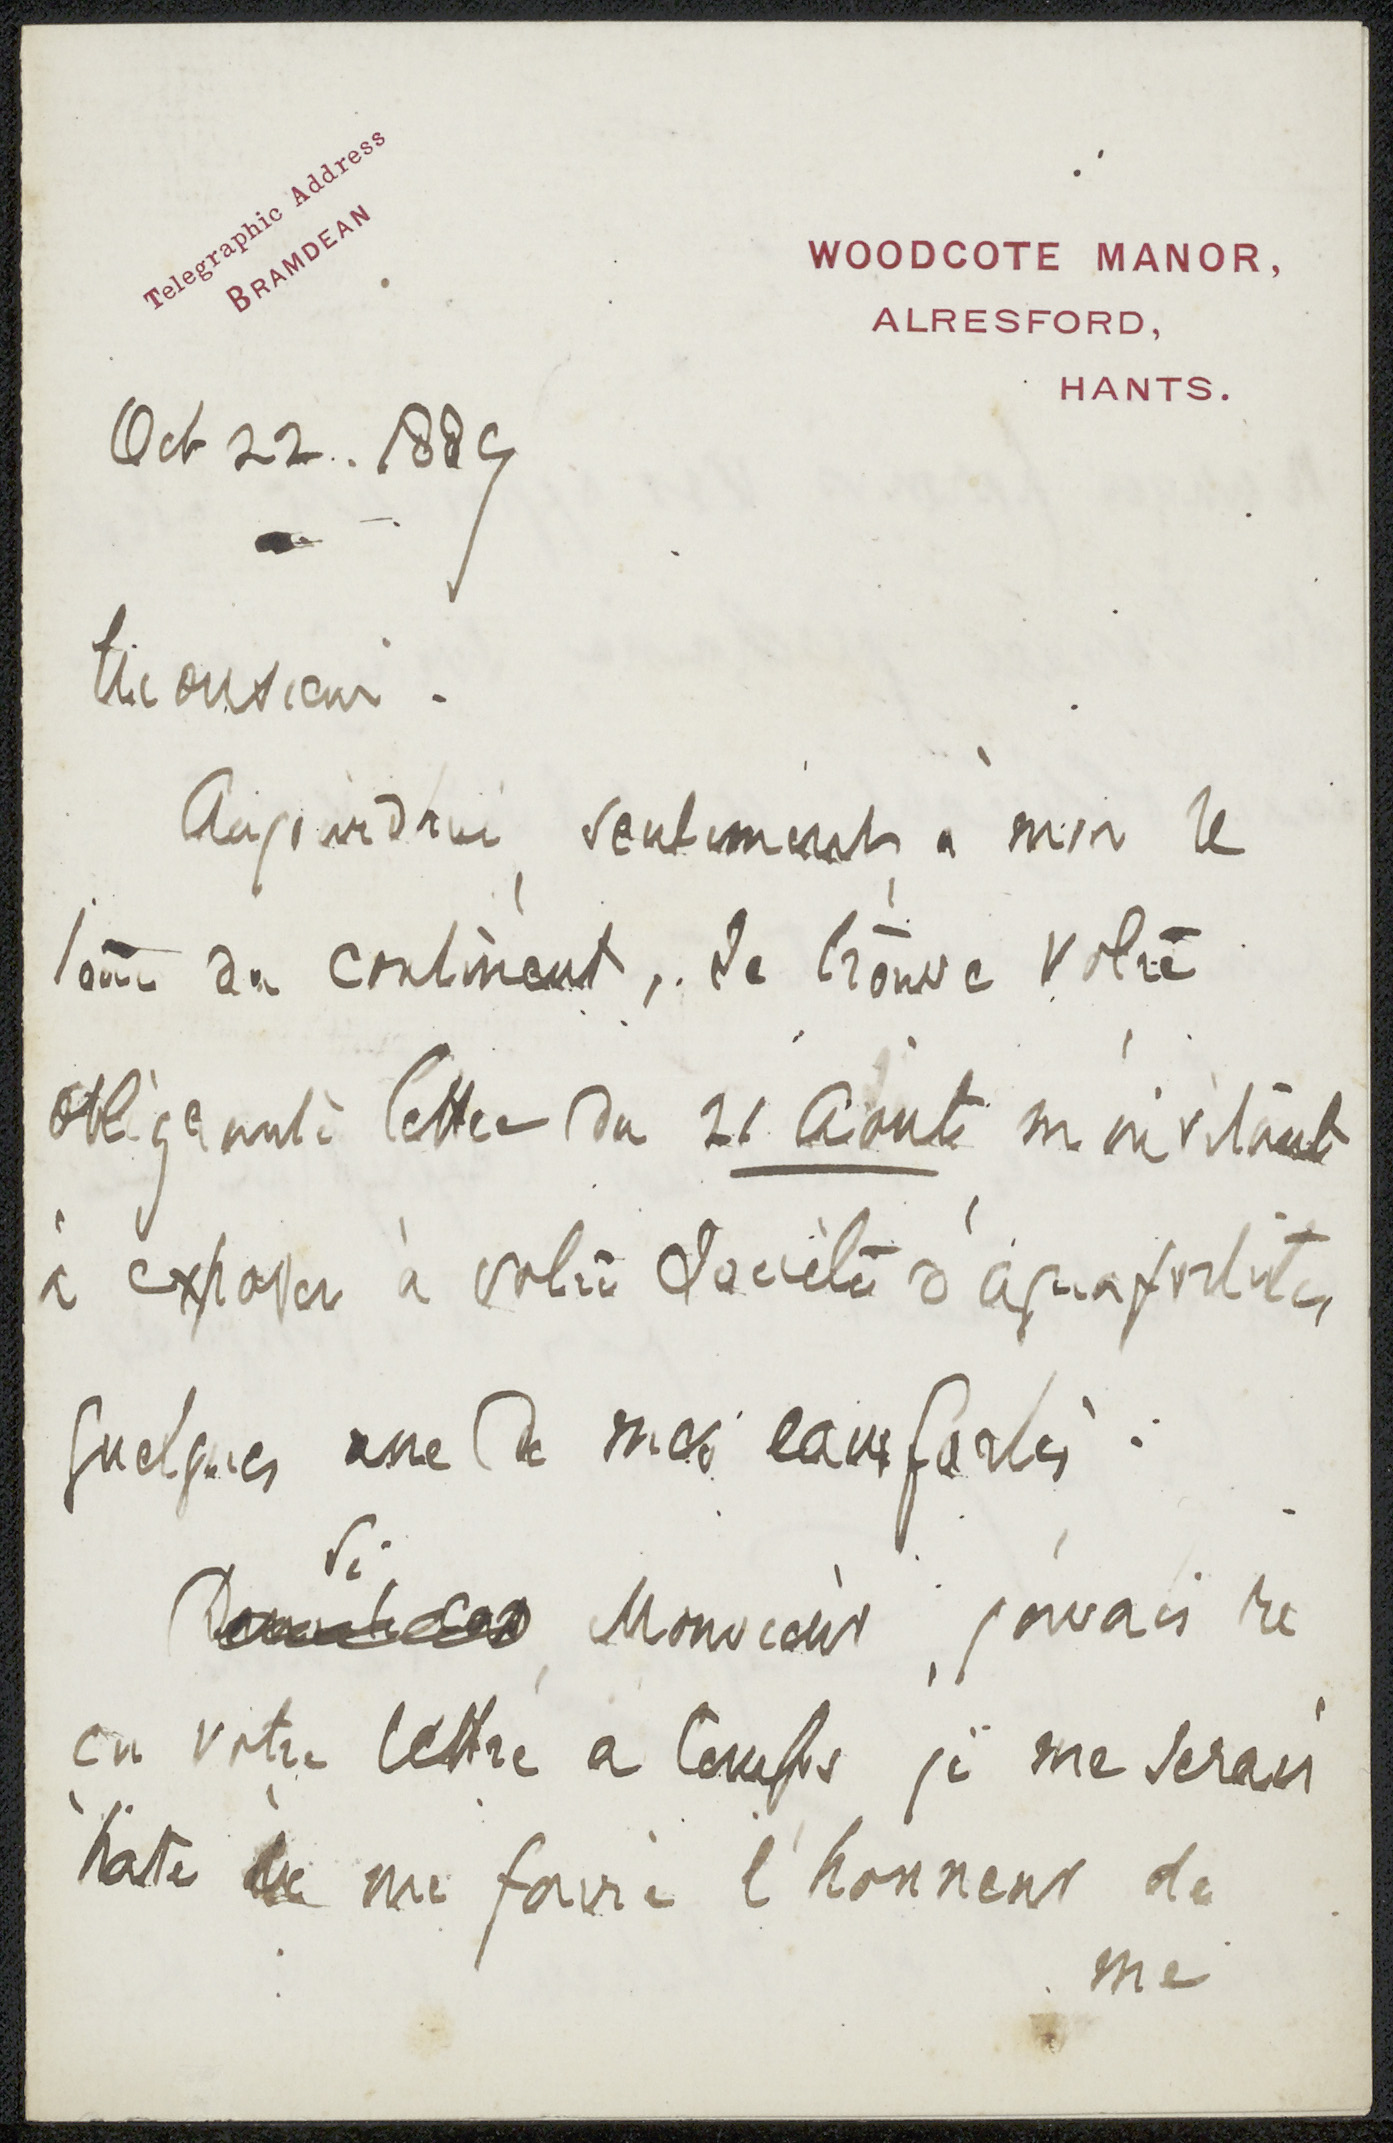 Telegraphic Address
BRAMDEAN
WOODCOTE MANOR,
ALRESFORD,
HANTS.
Oct 22. 1889
Monsieur.
Aujourdhui, seulement, à mon re
tour du continent, je trouve votre
obligeante lettre du 21 Aout m'invitant
à exposer à votre Societé d'aquafortistes
quelques une de mes eauxfortes.
Si
Monsieur, j'avais re
cu votre lettre a temps je me serais
hate de me faire l'honneur de
me